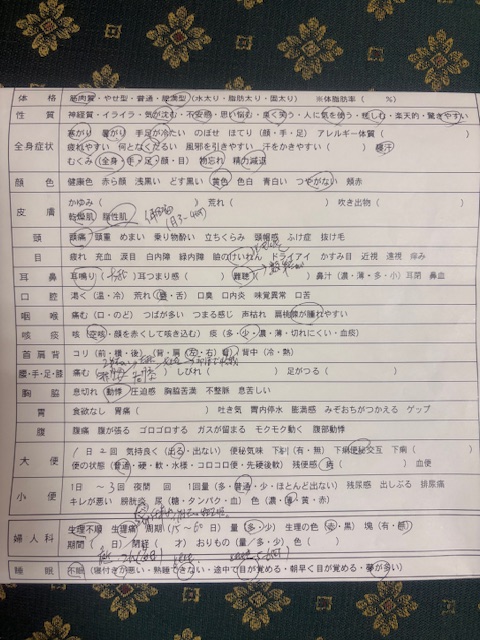 体 格 筋肉質・やせ型・普通・肥満型(水太り・脂肪太り・固太り) ※体脂肪率( %)
性 質 神経質・イライラ・気が沈む・不安感・思い悩む・良く笑う・人に気を使う・怪しむ・楽天的・驚きやすい
全身症状 寒がり 暑がり 手足が冷たい のぼせ ほてり(顔・手・足) アレルギー体質( )
疲れやすい 何となくだるい 風邪を引きやすい 汗をかきやすい( ) 寝汗
むくみ(全身・手・足・顔・目) 物忘れ 精力減退
顔 色 健康色 赤ら顔 浅黒い どす黒い 黄色 色白 青白い つやがない 頬赤
皮 膚 かゆみ( ) 荒れ( ) 吹き出物( )
乾燥肌 脂性肌
頭 頭痛 頭重 めまい 乗り物酔い 立ちくらみ 頭帽感 ふけ症 抜け毛
目 疲れ 充血 涙目 白内障 緑内障 瞼のけいれん ドライアイ かすみ目 近視 遠視 痒み
耳 鼻 耳鳴り( ) 耳つまり感( ) 難聴( ) 鼻汁(濃・薄・多・小) 耳閉 鼻血
口 腔 渇く(温・冷) 荒れ(唇・舌) 口臭 口内炎 味覚異常 口苦
咽 喉 痛む(口・のど) つばが多い つまる感じ 声枯れ 扁桃腺が腫れやすい
咳 痰 咳(空咳・顔を赤くして咳き込む) 痰(多・少・濃・薄・切れにくい・血痰)
首肩背 コリ(前・横・後)(背/肩(左・右)) 背中(冷・熱)
腰・手・足・膝 痛む( ) しびれ( ) 足がつる( )
胸 脇 息切れ 動悸 圧迫感 胸脇苦満 不整脈 息苦しい
胃 食欲なし 胃痛( ) 吐き気 胃内停水 膨満感 みぞおちがつかえる ゲップ
腹 腹痛 腹が張る ゴロゴロする ガスが留まる モクモク動く 腹部動悸
大 便 1日 2回 気持良く(出る・出ない) 便秘気味 下剤(有・無) 下痢便秘交互 下痢( )
便の状態(普通・硬・軟・水様・コロコロ便・先硬後軟) 残便感 痔( ) 血便
小 便 1日 ~3回 夜間 回 1回量(多・普通・少・ほとんど出ない) 残尿感 出しぶる 排尿痛
キレが悪い 膀胱炎 尿(糖・タンパク・血) 色(濃・薄・黄・赤)
婦人科 生理不順 生理痛 周期( 日) 量(多・少) 生理の色(赤・黒) 塊(有・無)
期間( 日) 閉経( 才) おりもの(量/多・少) 色( )
睡 眠 不眠(寝付きが悪い・熟睡できない・途中で目が覚める・朝早く目が覚める・夢が多い)